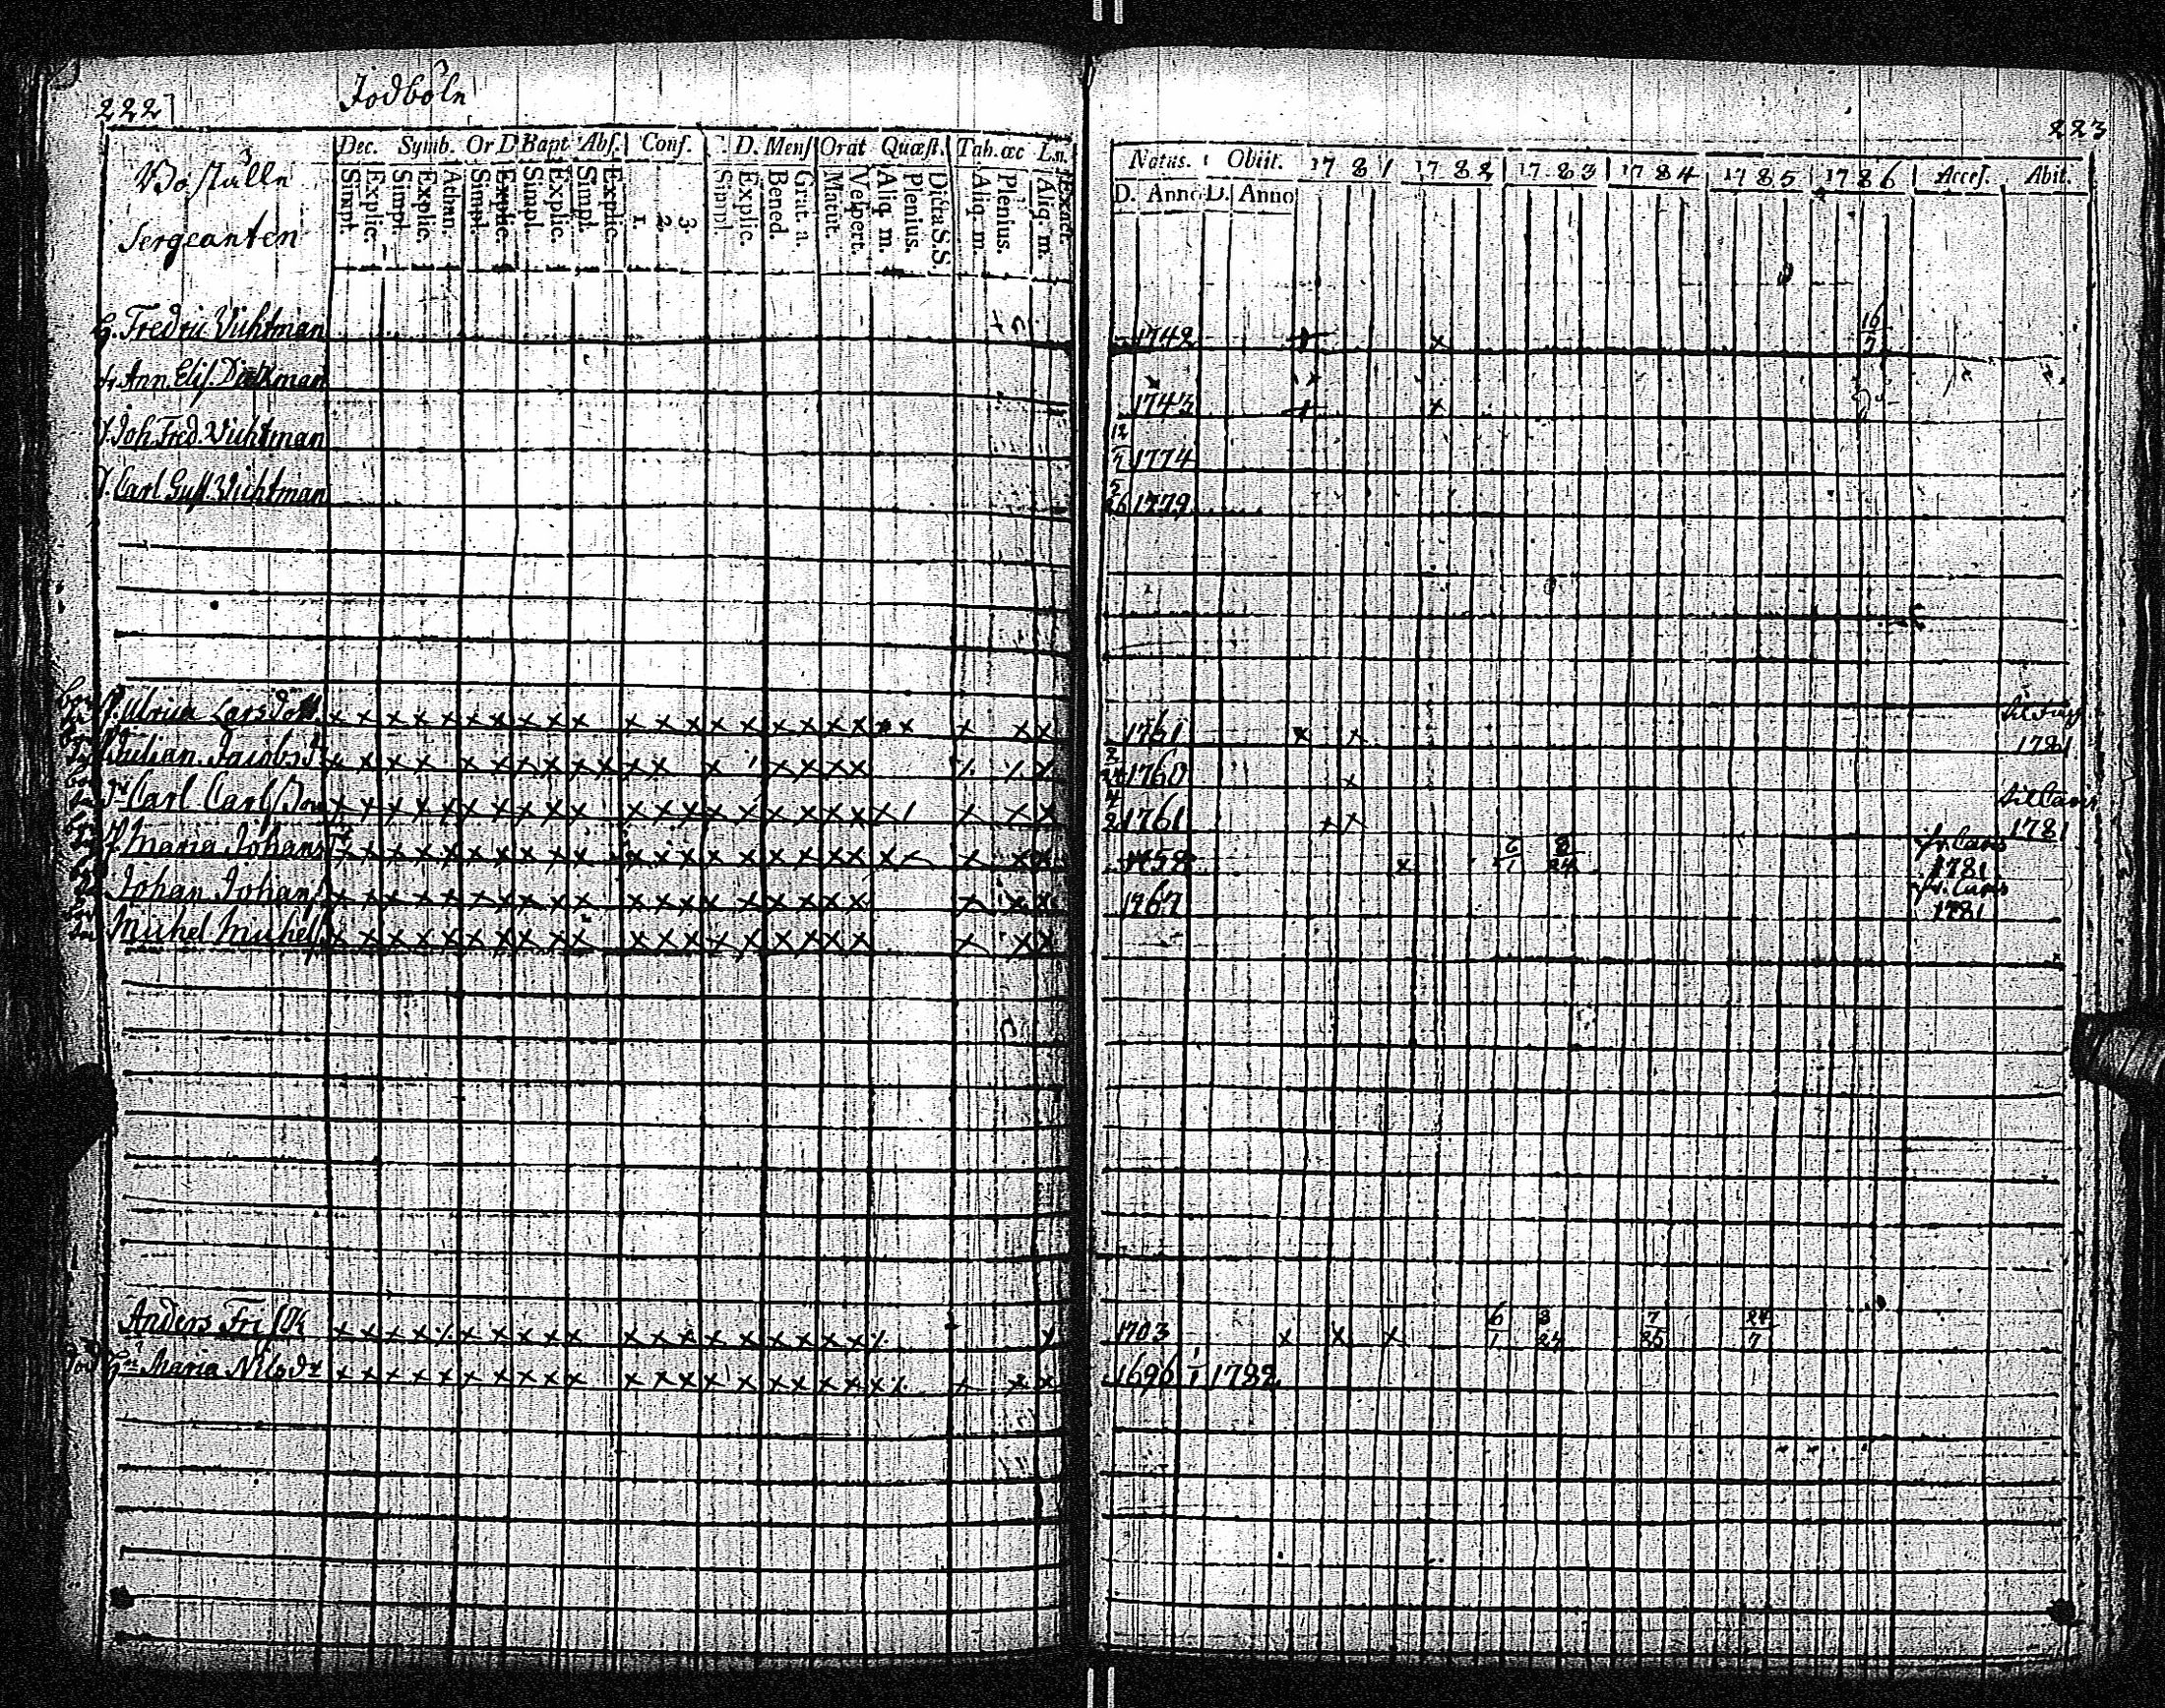 222
Jodböln
Dec. Symb. Or D Bapt Abs. Conf. C. D. Mens Orat Quæst. Tab. œc L.n.
Simpl. Explic. Simpl. Explic. Athan. Simpl. Explic. Simpl. Explic. Simpl. Explic. 1. 2. 3. Simpl. Explic. Bened. Grat. a. Matut. Vespert. Aliq. m. Plenius. Dicta S.S. Aliq. m. Plenius. Aliq. m. Exact.
Boställe
Sergeanten
H. Fredric Vichtman
fr. Ann. Elis. Dickman
S. Joh. Fred. Vichtman
S. Carl Gust. Vichtman
P. Ulrica Larsdott. x x x x x x x x x x x x x x x x x x x x x x x x x
Julian Jacobsd. x x x x x x x x x x x x x x x x x x x
Dr. Carl Carlsson x x x x x x x x x x x x x x x x x x x x x x x
P. Maria Johansd x x x x x x x x x x x x x x x x x x x x x x x
Johan Johans x x x x x x x x x x x x x x x x x x x x x x
Michel Michels x x x x x x x x x x x x x x x x x x x x x x
Anders Frisk x x x x x x x x x x x x x x x x x x x x x
död Hu. Maria Nilsdr x x x x x x x x x x x x x x x x x x x x x x x x
223
Natus. Obiit. 1781 1782 1783 1784 1785 1786 Acces. Abit.
D. Anno D. Anno
1742 x x 16/7
1743 x x
12/7 1774
5/26 1779
1761 x x 1781
2/24 1760 x
4/2 1761 x x 1781
1758 x 6/1 8/24 fr. Caris 1781
1767 fr. Caris 1781
1703 x x x 6/1 3/24 7/25 24/7
1696 1/1 1782